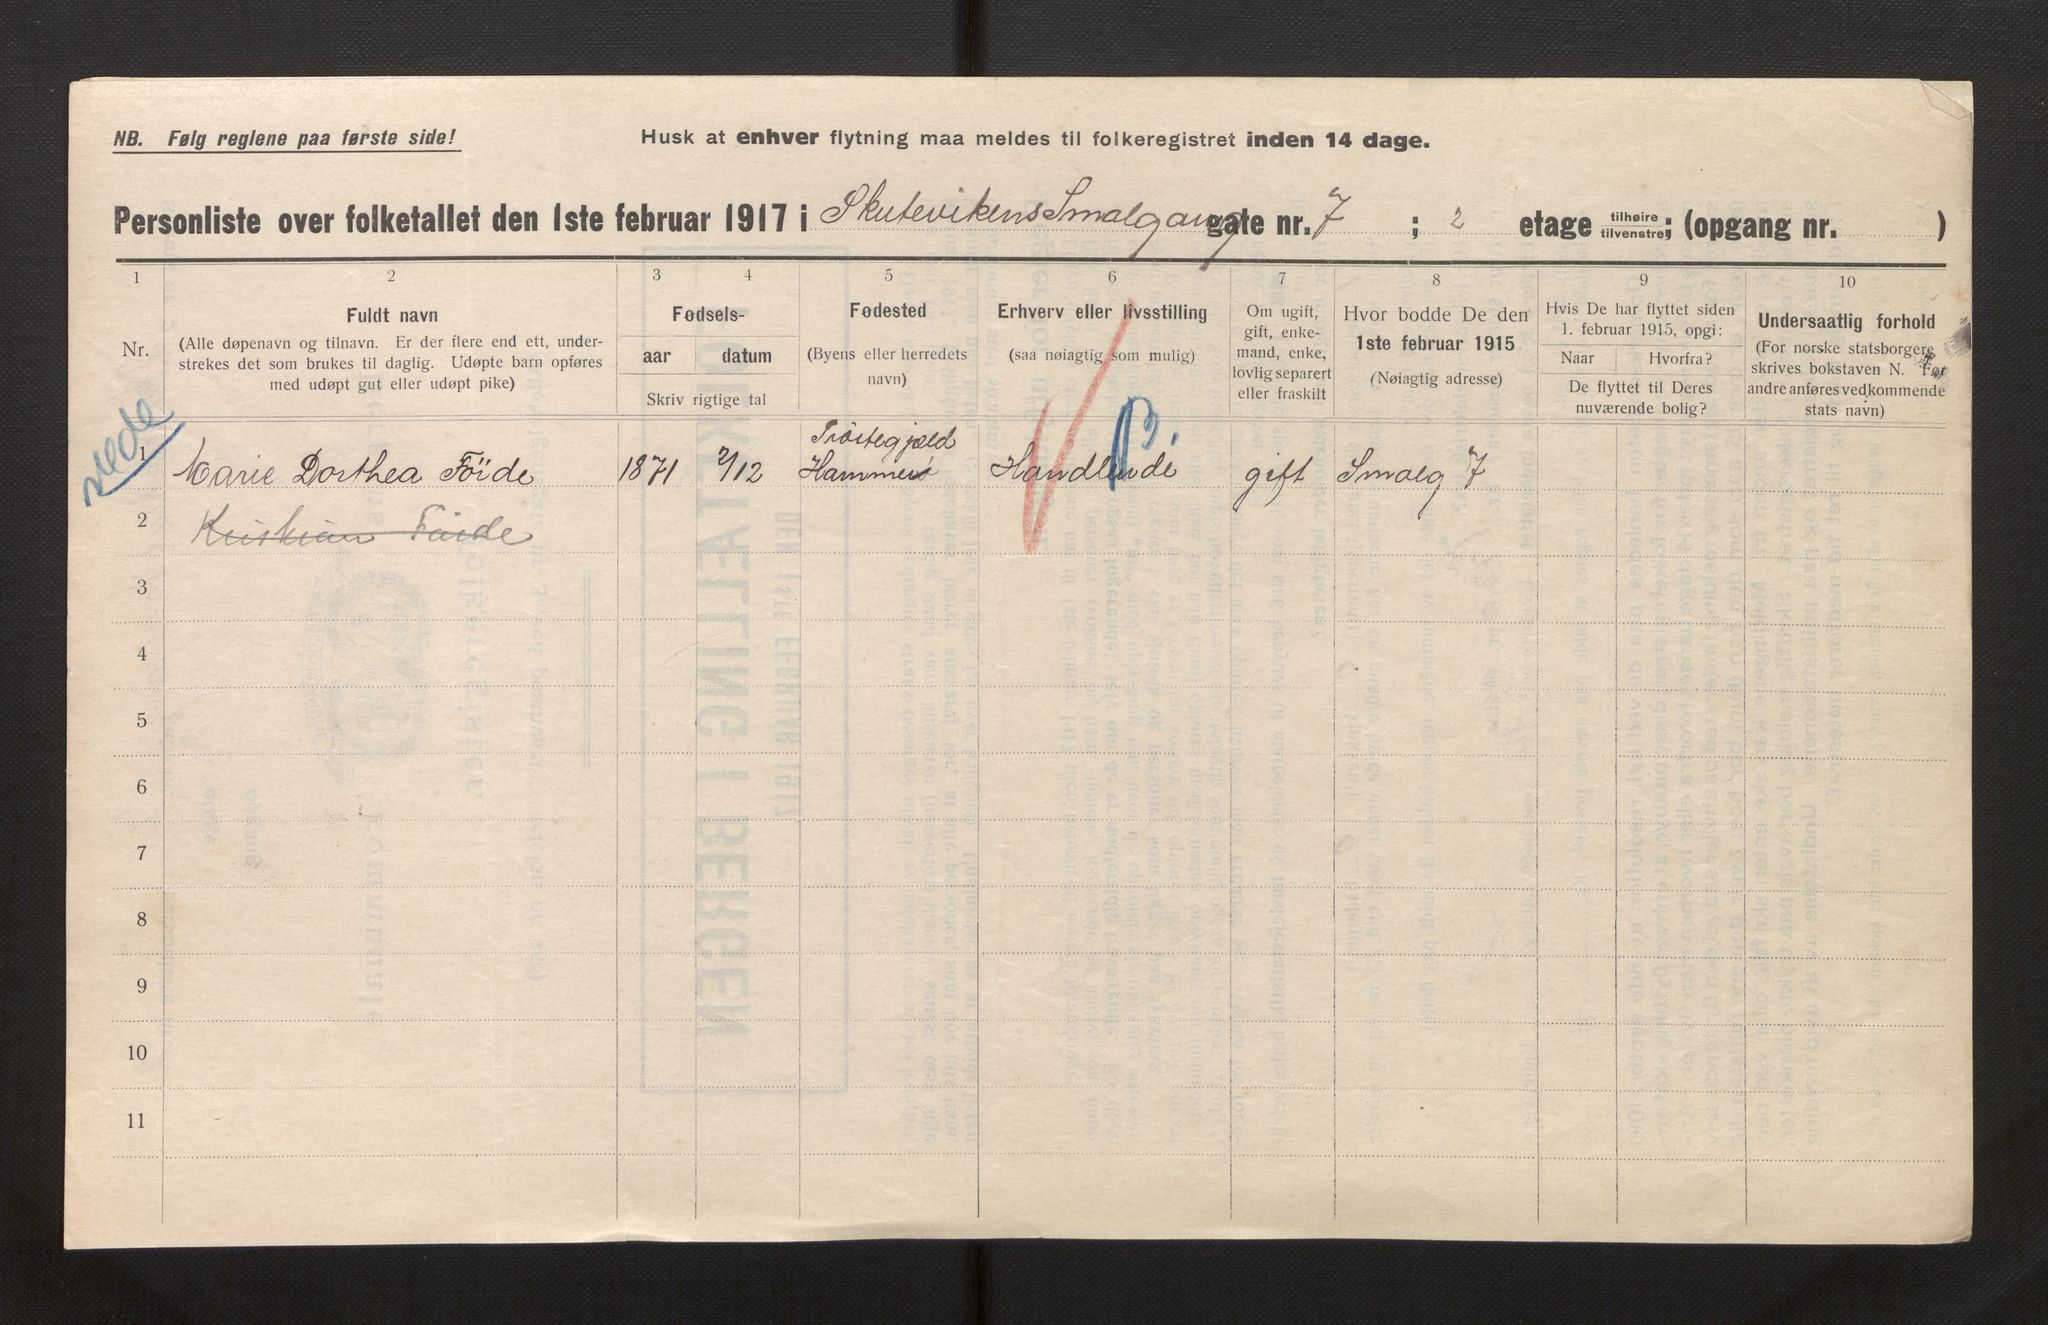 NB. Følg reglene paa første side!
Husk at enhver flytning maa meldes til folkeregistret inden 14 dage.
Personliste over folketallet den 1ste februar 1917 i Skutevikens Smalgang gate nr. 7 ; 2 etage tilhøire tilvenstre; (opgang nr. )
1 2 3 4 5 6 7 8 9 10
Nr.
Fuldt navn
(Alle døpenavn og tilnavn. Er der flere end ett, under-
strekes det som brukes til daglig. Udøpte barn opføres
med udøpt gut eller udøpt pike)
Fødsels-
aar datum
Skriv rigtige tal
Fødested
(Byens eller herredets
navn)
Erhverv eller livsstilling
(saa nøiagtig som mulig)
Om ugift,
gift, enke-
mand, enke,
lovlig separert
eller fraskilt
Hvor bodde De den
1ste februar 1915
(Nøiagtig adresse)
Hvis De har flyttet siden
1. februar 1915, opgi:
Naar Hvorfra?
De flyttet til Deres
nuværende bolig?
Undersaatlig forhold
(For norske statsborgere
skrives bokstaven N. For
andre anføres vedkommende
stats navn)
nede
B.
1 Marie Dorthea Föide 1871 2/12 Præstegjæld Hammers Handlende gift Smalg 7
2 Kristian Föide
3
4
5
6
7
8
9
10
11